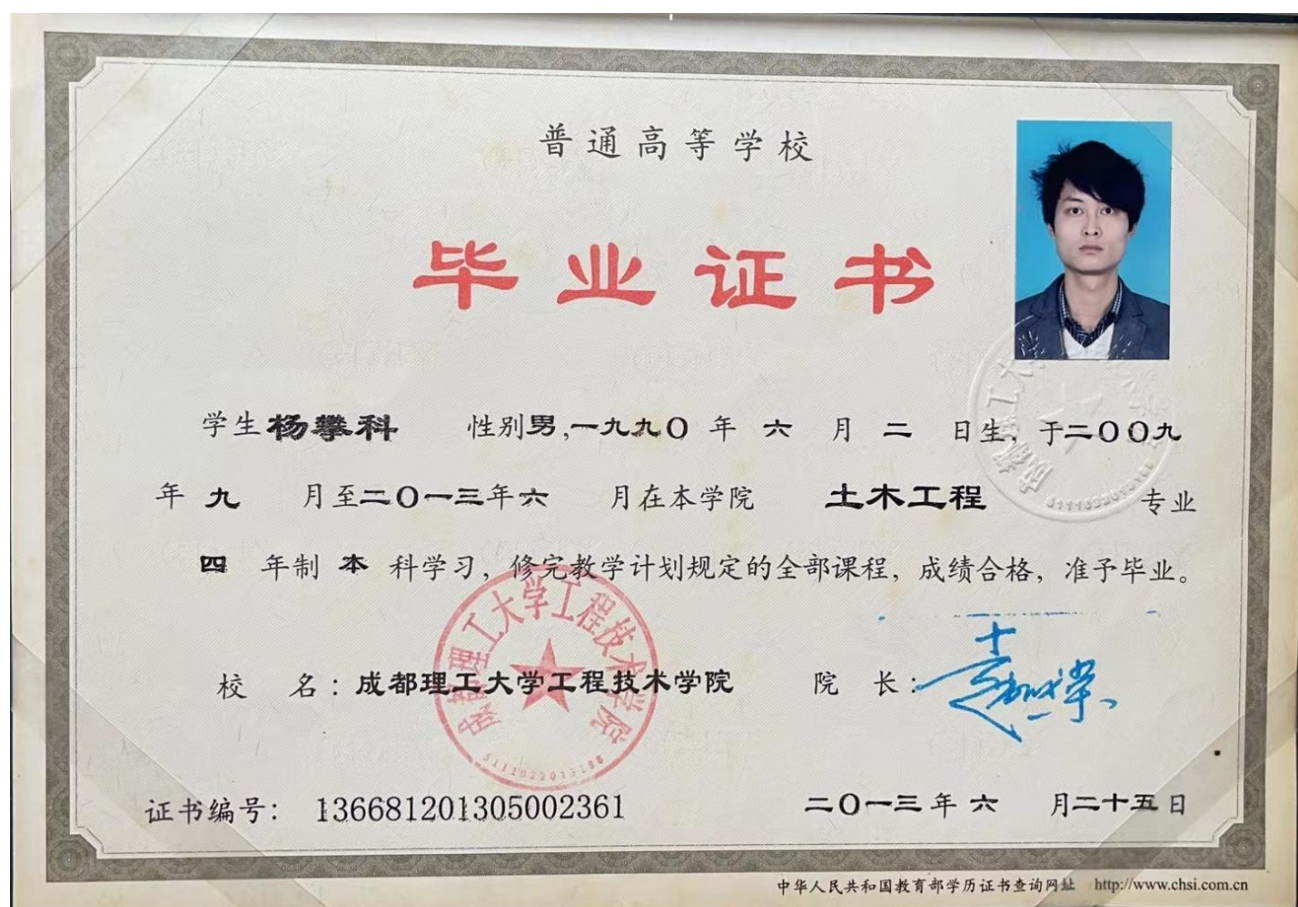 普通高等学校
毕业证书
学生杨攀科 性别男,一九九〇年六月二日生,于二〇〇九
年九月至二〇一三年六月在本学院 土木工程 专业
四年制本科学习,修完教学计划规定的全部课程,成绩合格,准予毕业。
成都理工大学工程技术学院
校名:成都理工大学工程技术学院 院长:
证书编号: 136681201305002361 二〇一三年六月二十五日
中华人民共和国教育部学历证书查询网址 http://www.chsi.com.cn